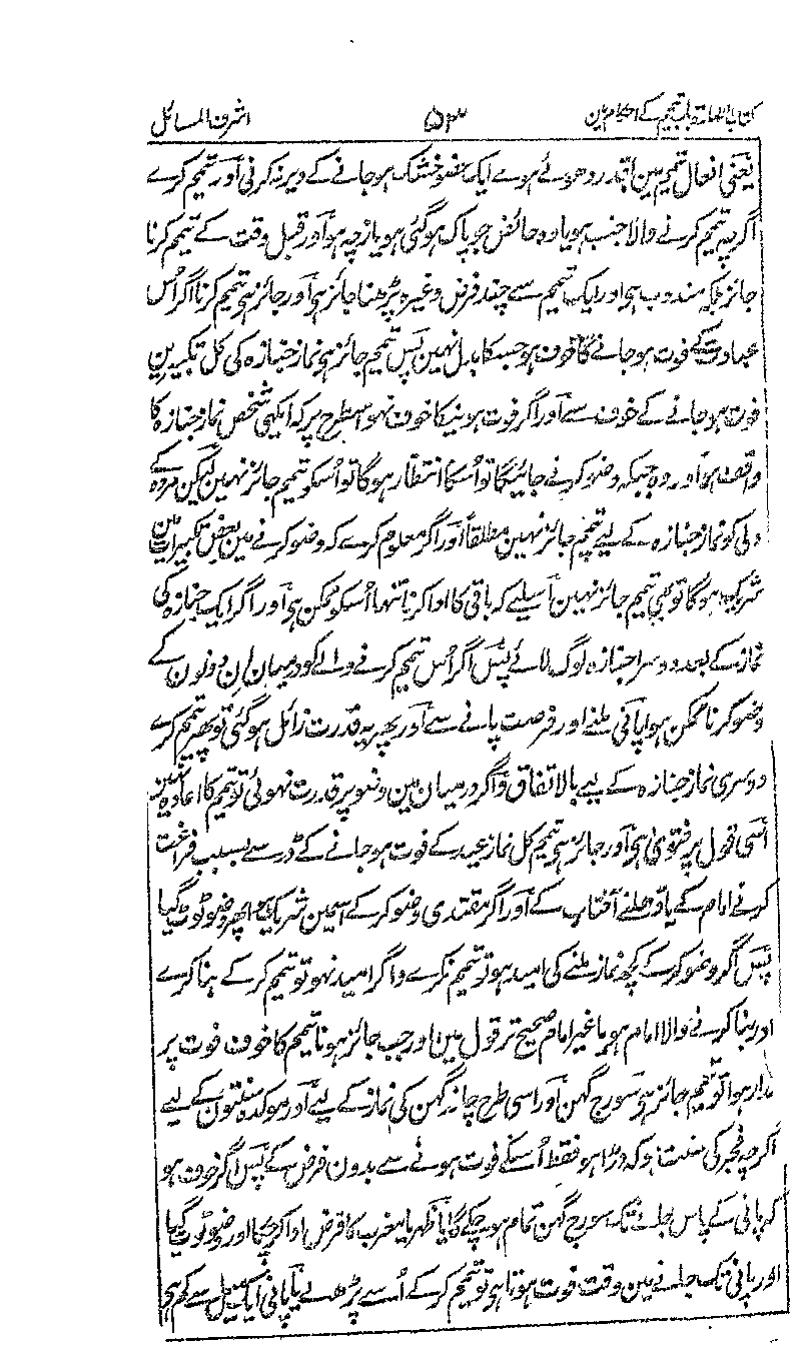 کتاب الطہارۃ باب تیمم کے احکام مین ۵۳ اشرف المسائل
یعنی افعال تیمم مین اسقدر دھوئے ہوے ایک عضو خشک ہو جانے کے دیر نہ کرنی اور تیمم کرے
اگرچہ تیمم کرنے والا جنب ہو یا وہ حائض جو پاک ہو گئی ہو یا زچہ ہو اور قبل وقت کے تیمم کرنا
جائز بلکہ مندوب ہی اور ایک تیمم سے چند فرض وغیرہ پڑھنا جائز ہی اور جائز ہی تیمم کرنا اگر اُس
عبادت کے فوت ہو جانے کا خوف ہو جسکا بدل نہین پس تیمم جائز ہی نماز جنازہ کی کل تکبیرین
فوت ہو جانے کے خوف سے اور اگر فوت ہونیکا خوف نہو اسطرح پر کہ ایک ہی شخص نماز جنازہ کا
واقف ہو اور وہ جبکہ وضو کرنے جائیگا تو اُسکا انتظار ہوگا تو اُسکو تیمم جائز نہین لیکن مردہ کے
ولی کو نماز جنازہ کے لیے تیمم جائز نہین مطلقاً اور اگر معلوم کرے کہ وضو کرنے مین بعض تکبیرات مین
شریک ہوگا تو بھی تیمم جائز نہین اسلیے کہ باقی کا ادا کرنا تنہا اُسکو ممکن ہی اور اگر ایک جنازہ کی
نماز کے بعد دوسرا جنازہ لوگ لائے پس اگر اُس تیمم کرنے والے کو درمیان ان دونون کے
وضو کرنا ممکن ہوا پانی ملنے اور فرصت پانے سے اور پھر یہ قدرت زائل ہو گئی تو پھر تیمم کرے
دوسری نماز جنازہ کے لیے بالاتفاق و اگر درمیان مین وضو پر قدرت نہوئی تو تیمم کا اعادہ نہین
اسی قول پر فتویٰ ہی اور جائز ہی تیمم کل نماز عید کے فوت ہو جانے کے ڈر سے بسبب فراغت
کرنے امام کے یا ڈھلنے آفتاب کے اور اگر مقتدی وضو کر کے اسمین شریک ہوا پھر وضو ٹوٹ گیا
پس اگر وضو کر کے کچھ نماز ملنے کی امید ہو تو تیمم نکرے و اگر امید نہو تو تیمم کر کے بنا کرے
اور بنا کرنے والا امام ہو یا غیر امام صحیح تر قول مین اور جب جائز ہونا تیمم کا خوف فوت پر
مدار ہوا تو تیمم جائز ہی سورج گہن اور اسی طرح چاند گہن کی نماز کے لیے اور موکدہ سنتون کے لیے
اگرچہ فجر کی سنت ہو کہ ڈرا ہو فقط اُسکے فوت ہونے سے بدون فرض کے پس اگر خوف ہو
کہ پانی کے پاس جانے تک سورج گہن تمام ہو چکے گا یا ظہر یا مغرب کا فرض ادا کر چکا اور وضو ٹوٹ گیا
اور پانی تک جانے مین وقت فوت ہوتا ہو تو تیمم کر کے اُسے پڑھ لے یا پانی ایک میل سے کم ہی